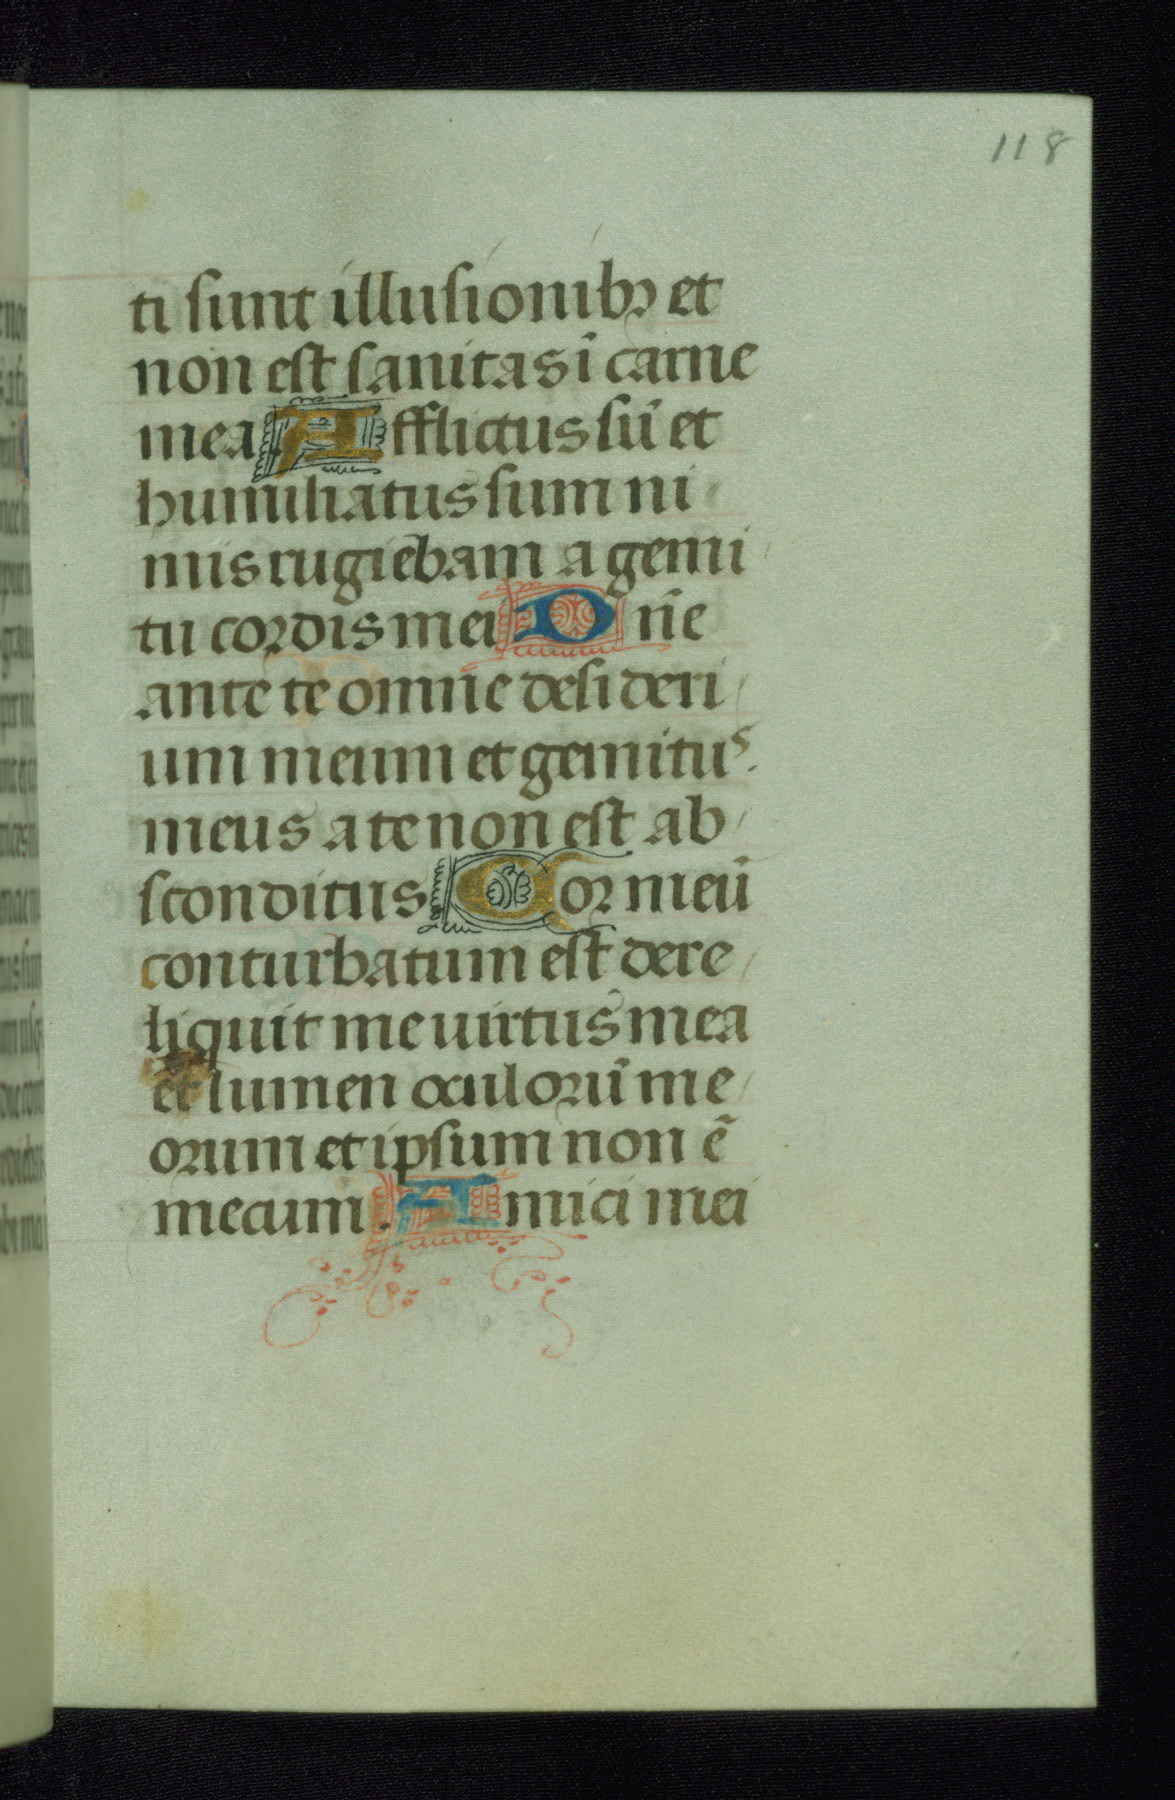 118
ti sunt illusionibꝫ et
non est sanitas ī carne
mea Afflictus sū et
humiliatus sum ni
mis rugiebam a gemi
tu cordis mei Dn̄e
ante te omne desideri
um meum et gemitus
meus a te non est ab
sconditus Cor meū
conturbatum est dere
liquit me uirtus mea
et lumen oculorū me
orum et ipsum non ē
mecum. Amici mei